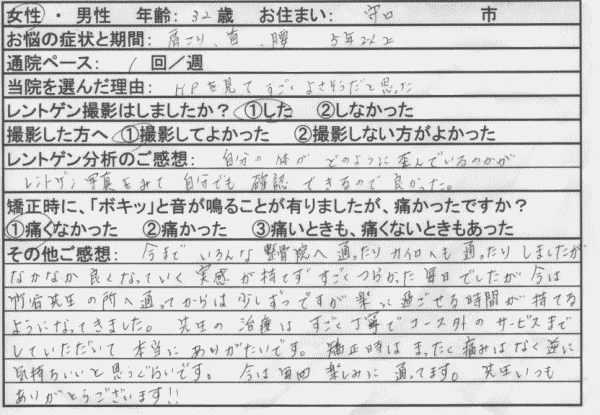 女性 ・ 男性　年齢: 32歳　お住まい: 守口　市
お悩の症状と期間: 肩こり、首、腰　5年以上
通院ペース: 1 回／週
当院を選んだ理由: HPを見てすごくよさそうだと思った
レントゲン撮影はしましたか？ ①した　②しなかった
撮影した方へ ①撮影してよかった　②撮影しない方がよかった
レントゲン分析のご感想: 自分の体が どのように歪んでいるのかが
レントゲン写真をみて 自分でも 確認 できるので良かった。
矯正時に、「ボキッ」と音が鳴ることが有りましたが、痛かったですか？
①痛くなかった　②痛かった　③痛いときも、痛くないときもあった
その他ご感想: 今まで いろんな 整骨院へ 通ったり カイロへも 通ったり しましたが
なかなか 良くなっていく 実感 が 持てず すごく つらかった 毎日 でしたが 今は
先生 の 所へ 通って からは 少しずつ ですが 楽に 過ごせる 時間が 持てる
ように なって きました。 先生の 治療は すごく 丁寧で コース外の サービスまで
していただいて 本当に ありがたいです。 矯正時は まったく 痛みは なく 逆に
気持ちいいと 思うぐらいです。 今は 毎回 楽しみに 通ってます。 先生 いつも
ありがとうございます!!